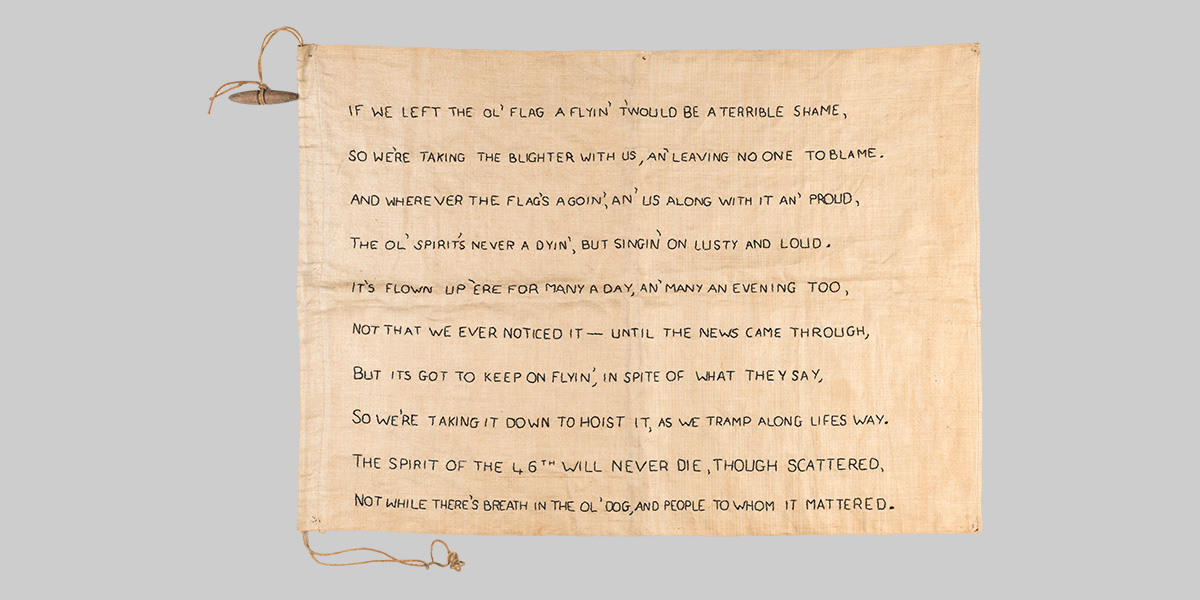 IF WE LEFT THE OL' FLAG A FLYIN' 'TWOULD BE A TERRIBLE SHAME,
SO WE'RE TAKING THE BLIGHTER WITH US, AN' LEAVING NO ONE TO BLAME.
AND WHEREVER THE FLAG'S A GOIN', AN' US ALONG WITH IT AN' PROUD,
THE OL' SPIRIT'S NEVER A DYIN', BUT SINGIN' ON LUSTY AND LOUD.
IT'S FLOWN UP 'ERE FOR MANY A DAY, AN' MANY AN EVENING TOO,
NOT THAT WE EVER NOTICED IT — UNTIL THE NEWS CAME THROUGH,
BUT ITS GOT TO KEEP ON FLYIN', IN SPITE OF WHAT THEY SAY,
SO WE'RE TAKING IT DOWN TO HOIST IT, AS WE TRAMP ALONG LIFES WAY.
THE SPIRIT OF THE 46TH WILL NEVER DIE, THOUGH SCATTERED,
NOT WHILE THERE'S BREATH IN THE OL' DOG, AND PEOPLE TO WHOM IT MATTERED.